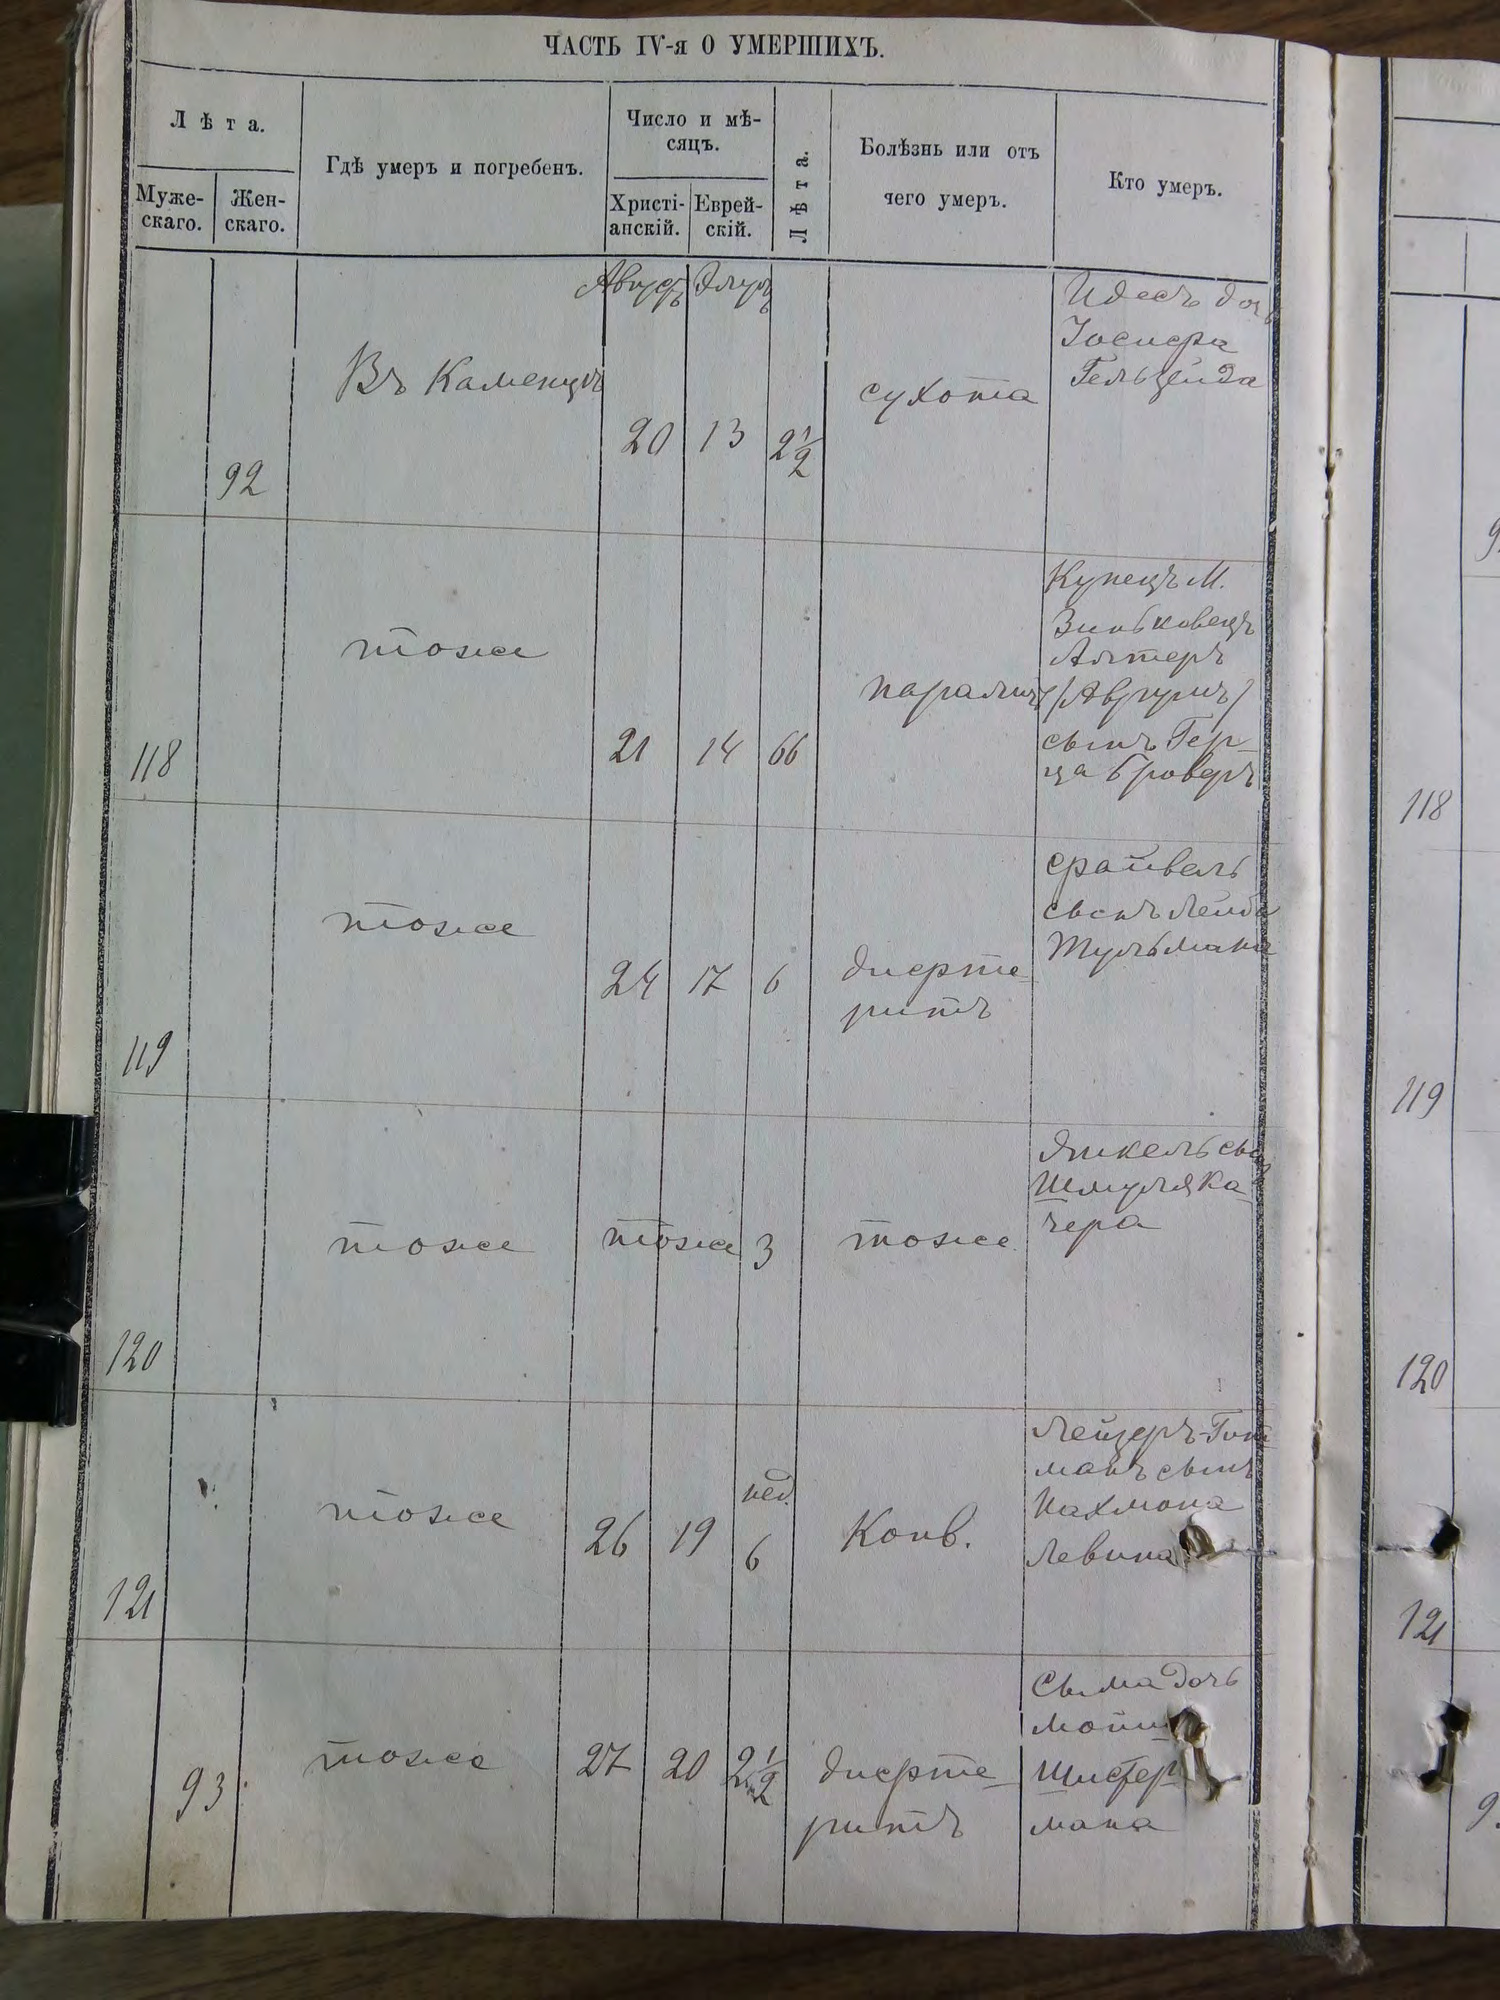 ЧАСТЬ IV-я О УМЕРШИХЪ.
Лѣта.
Муже-
скаго.
Жен-
скаго.
Гдѣ умеръ и погребенъ.
Число и мѣ-
сяцъ.
Христі-
анскій.
Еврей-
скій.
Лѣта.
Болѣзнь или отъ
чего умеръ.
Кто умеръ.
Августъ Элулъ
92
Въ Каменцѣ
20 13 2 1/2
сухота
Идесъ дочь
Іосифа
Гельзейда
118
тоже
21 14 66
параличъ
Купецъ М.
Зиньковецъ
Алтеръ
сынъ Гер-
ца Броверъ
119
тоже
24 17 6
дифте-
ритъ
Срайвель
сынъ Лейба
Тульмана
120
тоже
тоже 3
тоже
Янкель сынъ
Шмуля Ка-
чера
121
тоже
26 19
нед.
6
Конв.
Лейзеръ-Гит
манъ сынъ
Нахмона
Левина
93
тоже
27 20 2 1/2
дифте-
ритъ
Сыма дочь
Шистер-
мана
118
119
120
121